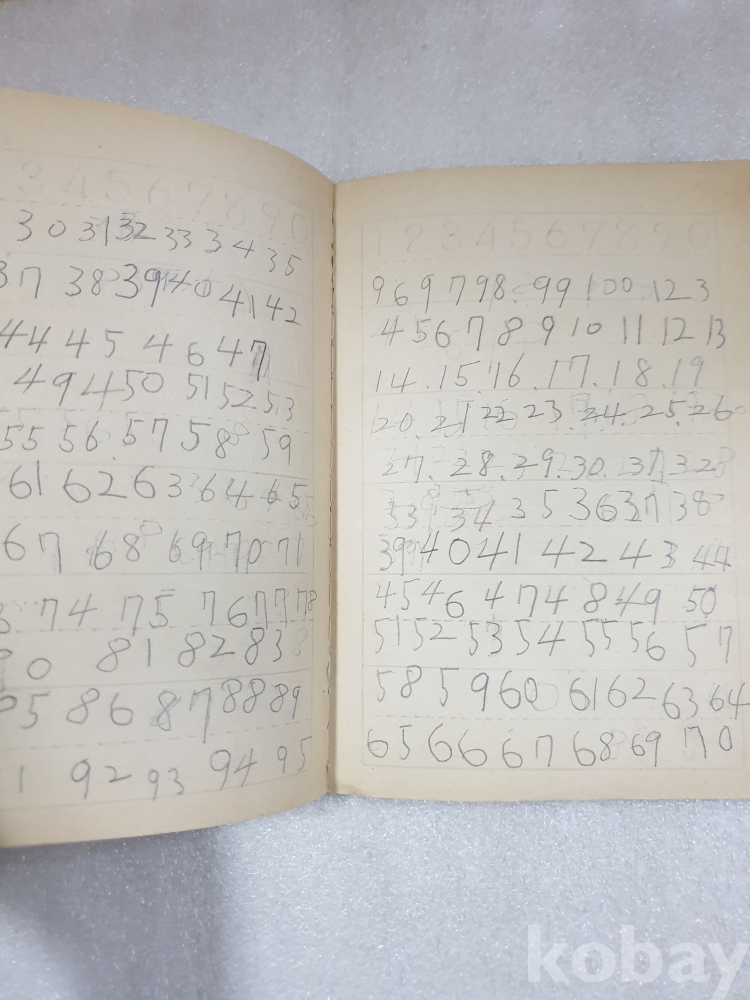 3 4 5 6 7 8 9 0
30 31 32 33 34 35
37 38 39 40 41 42
44 45 46 47
49 450 51 52 53
55 56 57 58 59
61 62 63 64 65
67 68 69 70 71
74 75 76 77 78
80 81 82 83
85 86 87 88 89
1 92 93 94 95
1 2 3 4 5 6 7 8 9 0
96 97 98 99 100 1 2 3
4 5 6 7 8 9 10 11 12 13
14. 15. 16. 17. 18. 19
20. 21 22 23. 24. 25. 26
27. 28. 29. 30. 31 32
33 34 35 36 37 38
39 40 41 42 43 44
45 46 47 48 49 50
51 52 53 54 55 56 57
58 59 60 61 62 63 64
65 66 67 68 69 70
kobay